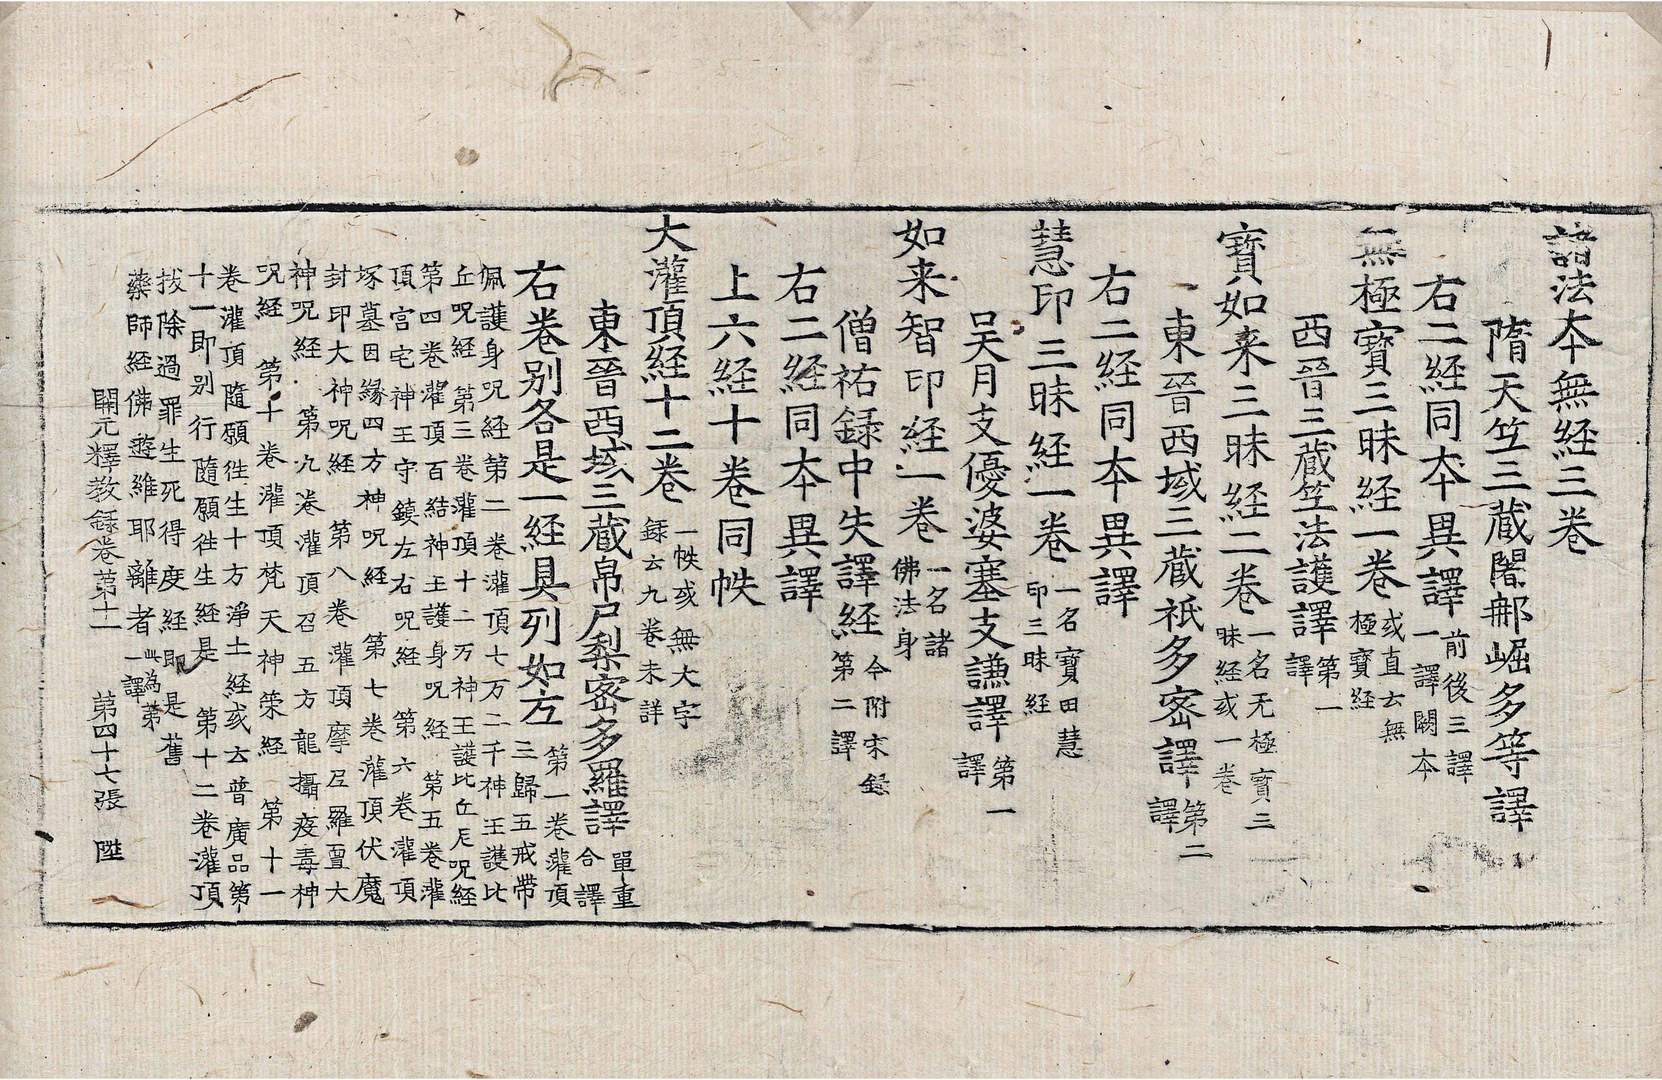 諸法夲無経三巻
隋天竺三藏闍郍崛多等譯
右二経同夲異譯 前後三譯
一譯闕夲
無極寶三昧経一巻 或直云無
極寶経
西晉三蔵竺法護譯 第一
譯
寶如来三昧経二巻 一名无極寶三
昧経或一巻
東晉西域三蔵祇多蜜譯 第二
譯
右二経同夲異譯
慧印三昧経一巻 一名寶田慧
印三昧経
吴月支優婆塞支謙譯 第一
譯
如来智印経一巻 一名諸
佛法身
僧祐録中失譯経 今附宋録
第二譯
右二経同夲異譯
上六経十巻同帙
大灌頂経十二巻 一帙或無大字
録云九巻未詳
東晉西域三蔵帛尸梨蜜多羅譯 單重
合譯
右巻别各是一経具列如左 第一巻灌頂
三歸五戒帶
佩護身呪経 第二巻灌頂七万二千神王護比
丘呪経 第三巻灌頂十二万神王護比丘尼呪経
第四巻灌頂百結神王護身呪経 第五巻灌
頂宮宅神王守鎮左右呪経 第六巻灌頂
塚墓因縁四方神呪経 第七巻灌頂伏魔
封印大神呪経 第八巻灌頂摩尼羅亶大
神呪経 第九巻灌頂召五方龍攝疫毒神
呪経 第十巻灌頂梵天神策経 第十一
巻灌頂隨願徃生十方淨土経或云普廣品第
十一即别行隨願徃生経是 第十二巻灌頂
拔除過罪生死得度経即是舊
藥師経佛遊維耶離者 此為第
一譯
開元釋教録巻苐十一 第四十七張 陞